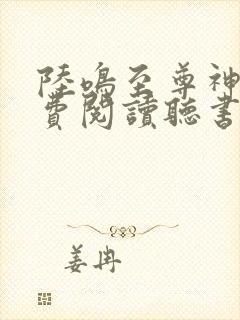 陸鳴至尊神
費閱讀聽書
姜冉